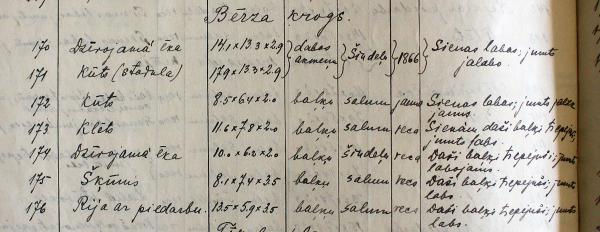 Bērza krogs.
170 Dzīvojamā ēka 14,1 x 13.3 x 2.9 dabas akmeņu Šindeļu 1866 Sienas labas; jumts jālabo.
171 Kūts (stadula) 17.9 x 13.3 x 2.9
172 Kūts 8.5 x 6.4 x 2.0 baļķu salmu jauna Sienas labas; jumts jauns.
173 Klēts 11.6 x 7.8 x 2.0 baļķu salmu veca Sienām daži baļķi trepējuši, jumts labs.
174 Dzīvojamā ēka 10.0 x 6.2 x 2.0 baļķu Šindeļu veca Daži baļķi trepējuši; jumts labojams.
175 Šķūnis 8.1 x 7.4 x 3.5 baļķu salmu vecs Daži baļķi trepējuši; jumts labs.
176 Rija ar piedarbu. 13.5 x 5.9 x 3.5 baļķu salmu vecs Daži baļķi trepējuši, jumts labs.